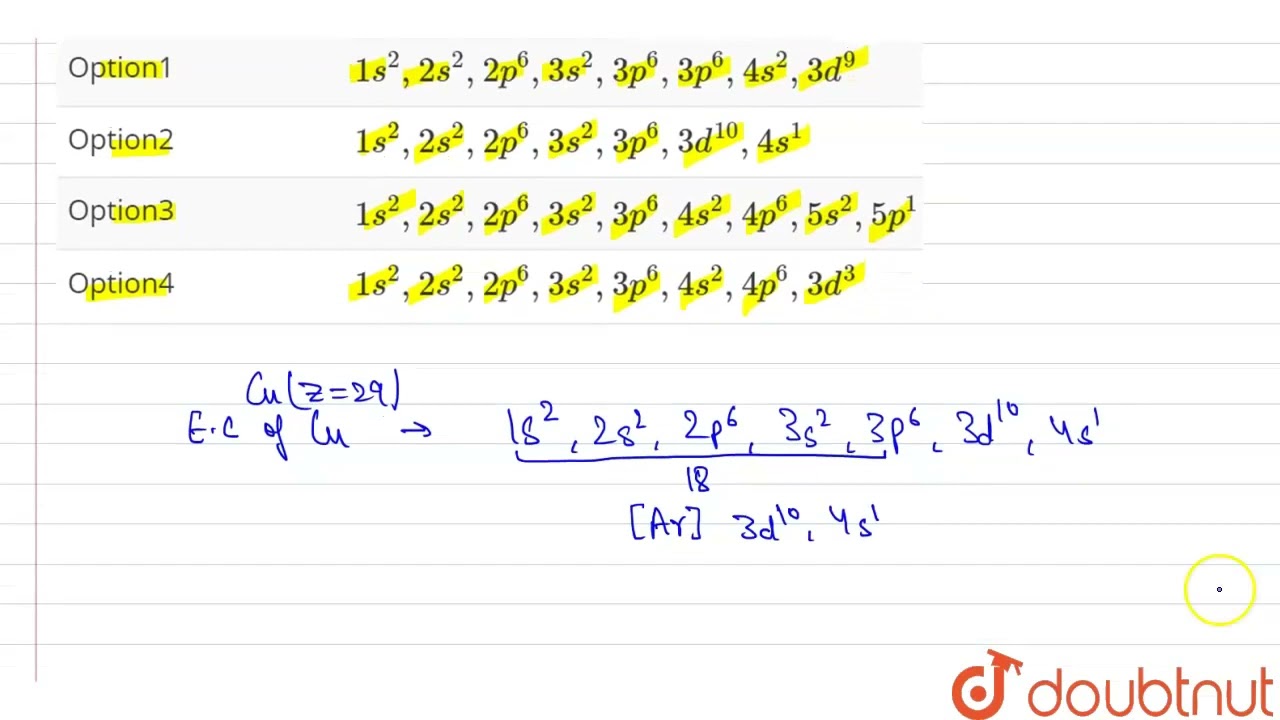 Option1 1s², 2s², 2p⁶, 3s², 3p⁶, 3p⁶, 4s², 3d⁹
Option2 1s², 2s², 2p⁶, 3s², 3p⁶, 3d¹⁰, 4s¹
Option3 1s², 2s², 2p⁶, 3s², 3p⁶, 4s², 4p⁶, 5s², 5p¹
Option4 1s², 2s², 2p⁶, 3s², 3p⁶, 4s², 4p⁶, 3d³
Cu(z=29)
E.C of Cu → 1s², 2s², 2p⁶, 3s², 3p⁶, 3d¹⁰, 4s¹
18
[Ar] 3d¹⁰, 4s¹
doubtnut